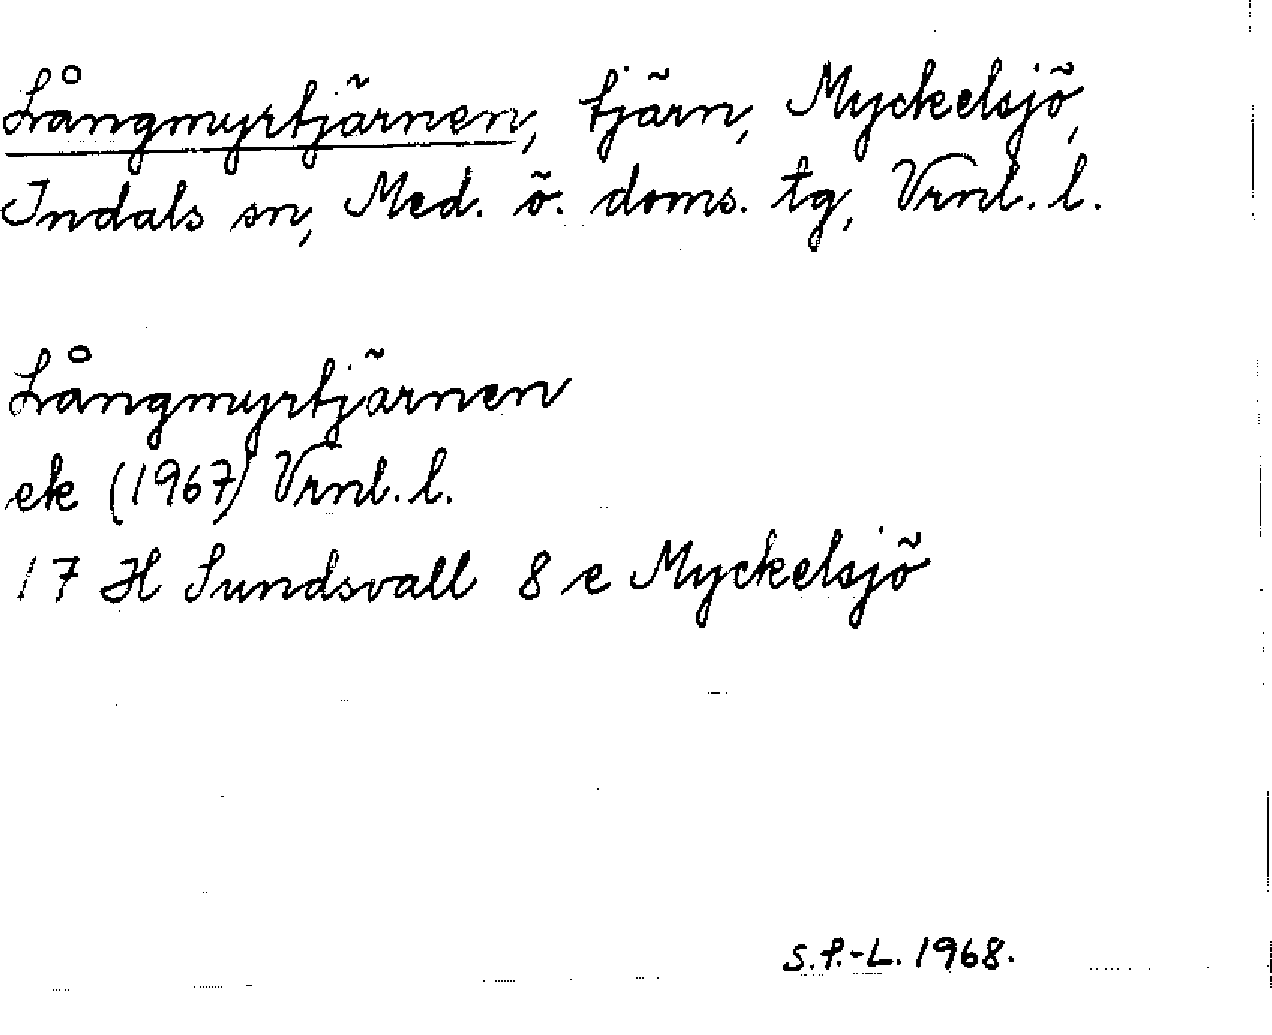 Långmyrtjärnen, tjärn, Myckelsjö,
Indals sn, Med. ö. doms. tg, Vrnl. l.
Långmyrtjärnen
ek (1967) Vrnl. l.
17 H Sundsvall 8 e Myckelsjö
S.P.-L. 1968.